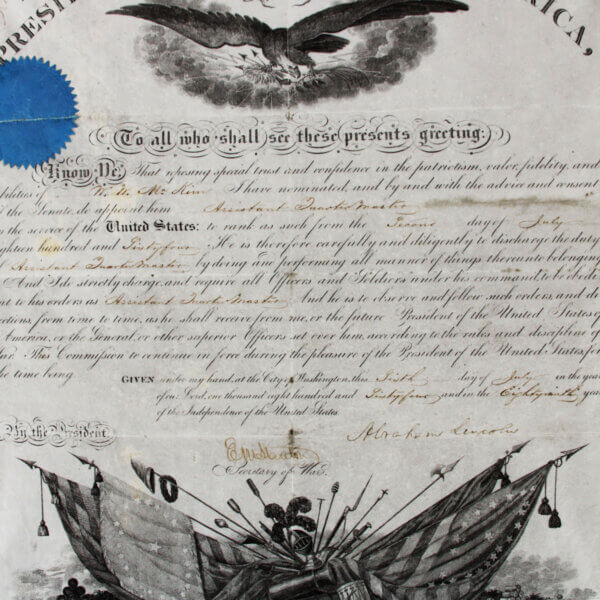 PRESI RICA,
To all who shall see these presents greeting:
Know Ye, That reposing special trust and confidence in the patriotism, valor, fidelity, and
bilities of W. W. McKim I have nominated, and by and with the advice and consent
f the Senate, do appoint him Assistant Quarter Master
n the service of the United States: to rank as such from the Second day of July
ighteen hundred and Sixtyfour. He is therefore carefully and diligently to discharge the duty
f Assistant Quarter Master by doing and performing all manner of things thereunto belonging.
And I do strictly charge, and require all Officers and Soldiers under his command to be obedi
nt to his orders as Assistant Quarter Master. And he is to observe and follow such orders, and di
ections, from time to time, as he shall receive from me, or the future President of the United States of
America, or the General, or other superior Officers set over him, according to the rules and discipline of
ar. This Commission to continue in force during the pleasure of the President of the United States, for
he time being.
GIVEN under my hand, at the City of Washington, this Sixth day of July in the year
of our Lord, one thousand eight hundred and Sixtyfour and in the Eightyninth year
of the Independence of the United States.
By the President
Abraham Lincoln
Edwin M Stanton
Secretary of War.